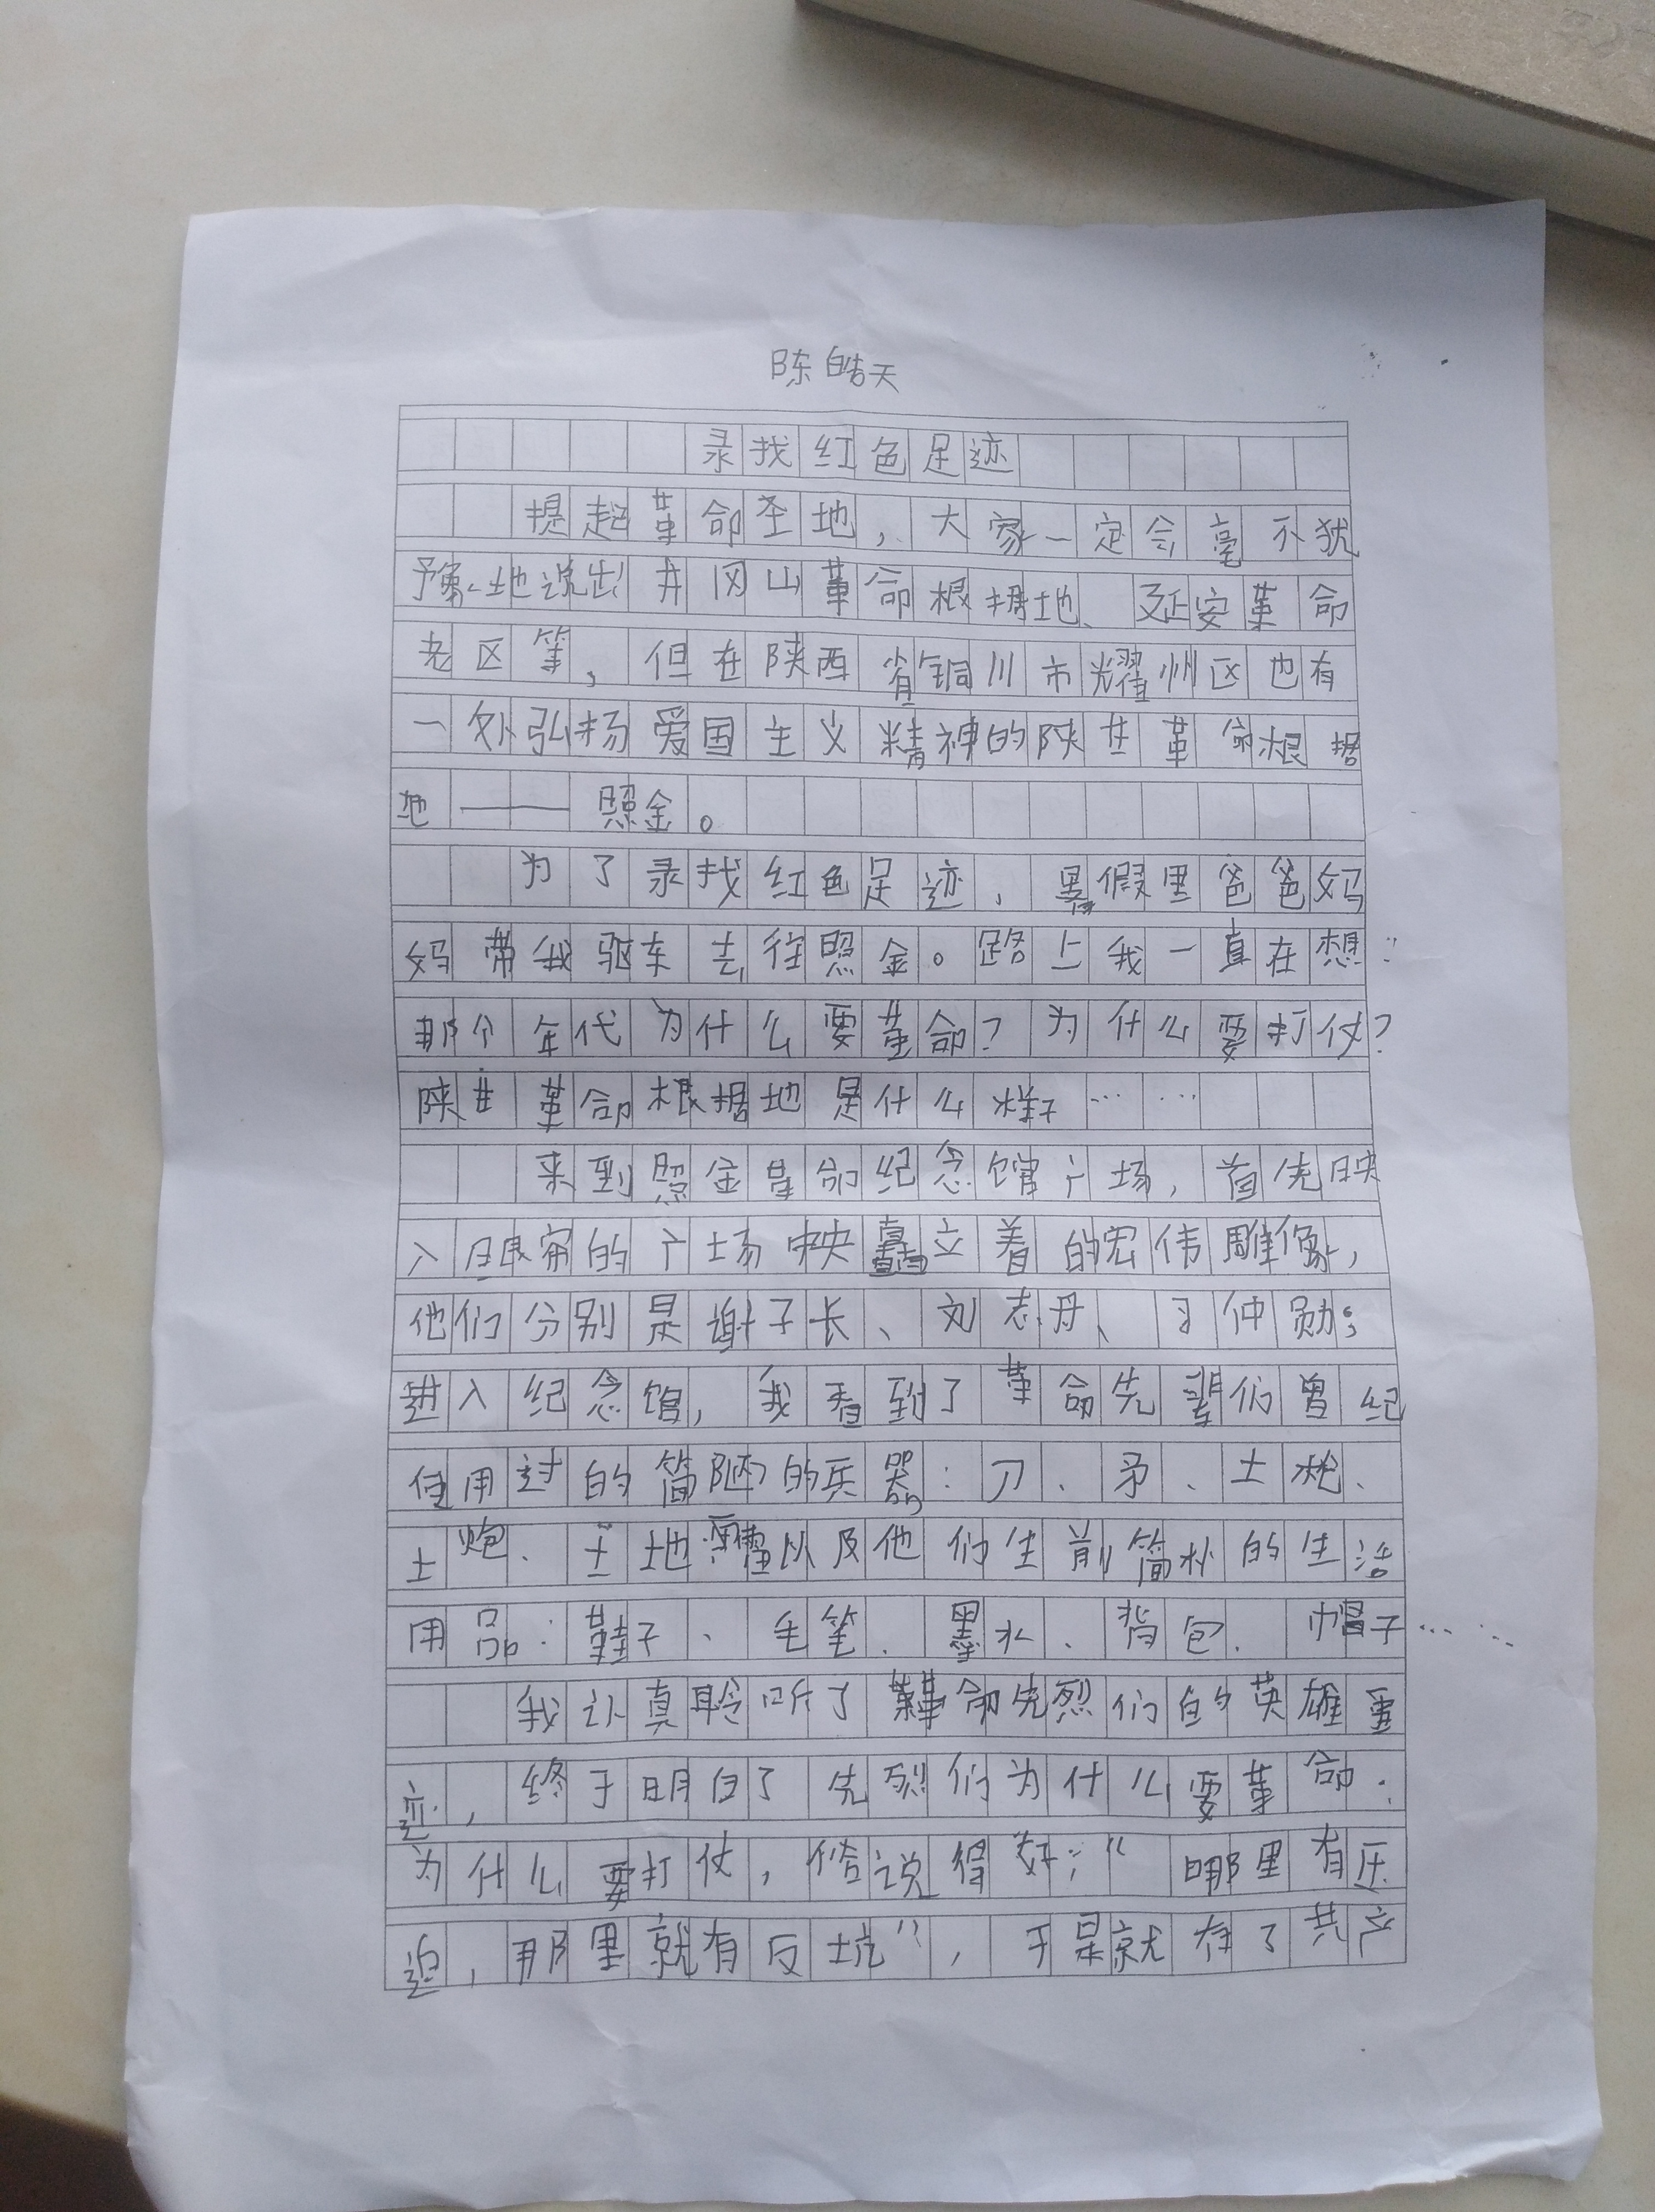 陈皓天
录找红色足迹
提起革命圣地，大家一定会毫不犹
豫地说出井冈山革命根据地、延安革命
老区等，但在陕西省铜川市耀州区也有
一处弘扬爱国主义精神的陕甘革命根据
地——照金。
为了录找红色足迹，暑假里爸爸妈
妈带我驱车去往照金。路上我一直在想：
那个年代为什么要革命？为什么要打仗？
陕甘革命根据地是什么样子……
来到照金革命纪念馆广场，首先映
入眼帘的广场中央矗立着的宏伟雕像，
他们分别是谢子长、刘志丹、习仲勋；
进入纪念馆，我看到了革命先辈们曾纪
使用过的简陋的兵器：刀、矛、土枪、
土炮、土地雷以及他们生前简朴的生活
用品：鞋子、毛笔、墨水、背包、帽子……
我认真聆听了革命先烈们的英雄事
迹，终于明白了先烈们为什么要革命．
为什么要打仗，俗说得好：“哪里有压
迫，那里就有反坑”，于是就有了共产